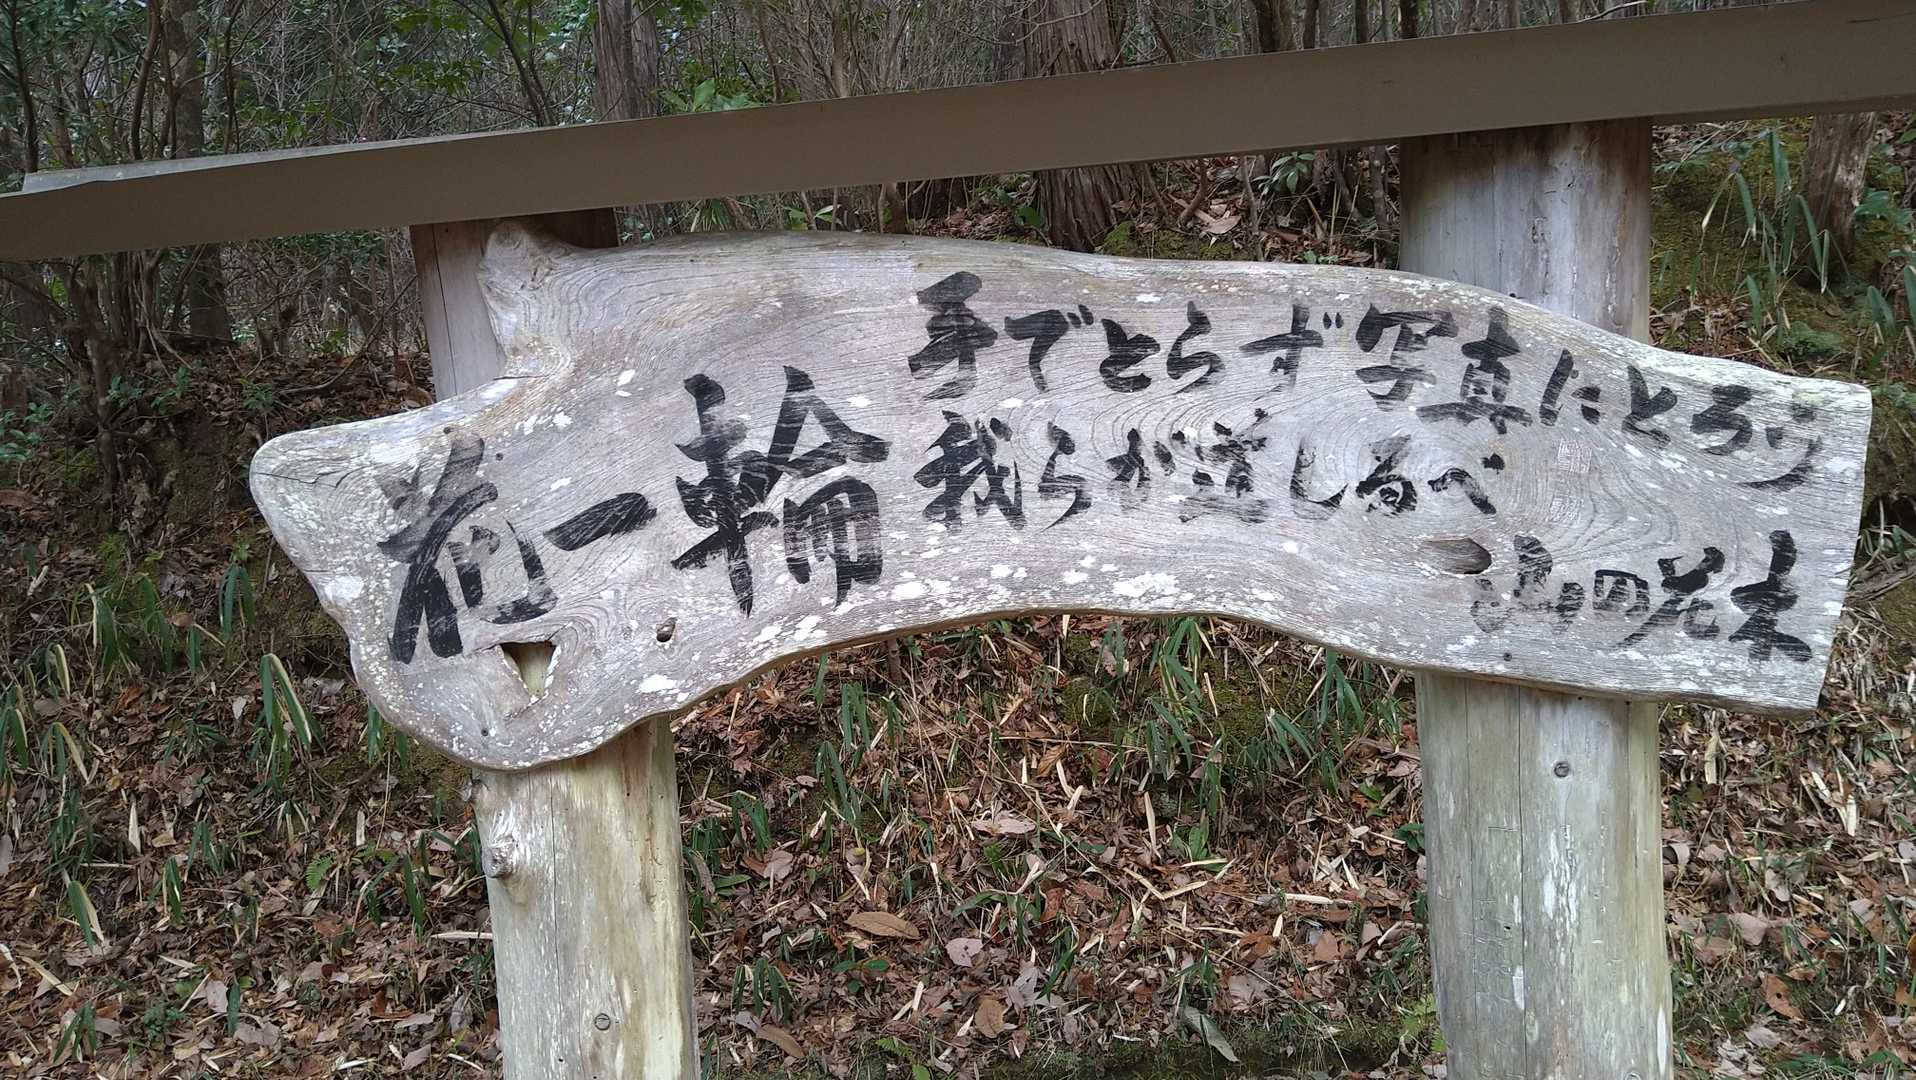 花一輪
手でとらず写真にとろう
我らが道しるべ
山の花木